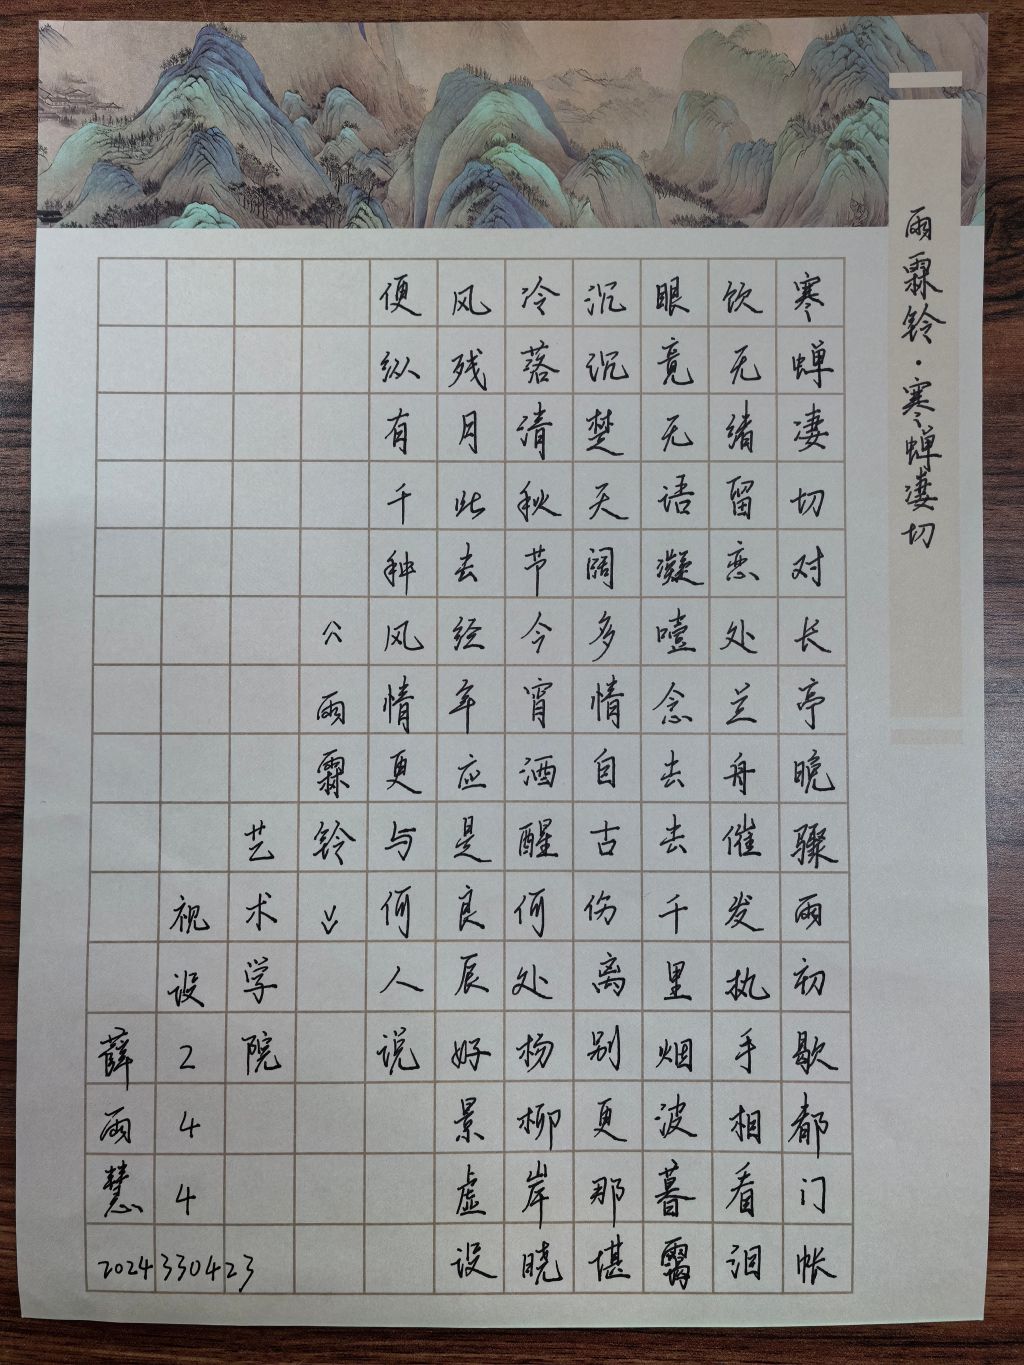 雨霖铃·寒蝉凄切
寒蝉凄切对长亭晚骤雨初歇都门帐
饮无绪留恋处兰舟催发执手相看泪
眼竟无语凝噎念去去千里烟波暮霭
沉沉楚天阔多情自古伤离别更那堪
冷落清秋节今宵酒醒何处杨柳岸晓
风残月此去经年应是良辰好景虚设
便纵有千种风情更与何人说
《雨霖铃》
艺术学院
视设244
薛雨慧
2024330423